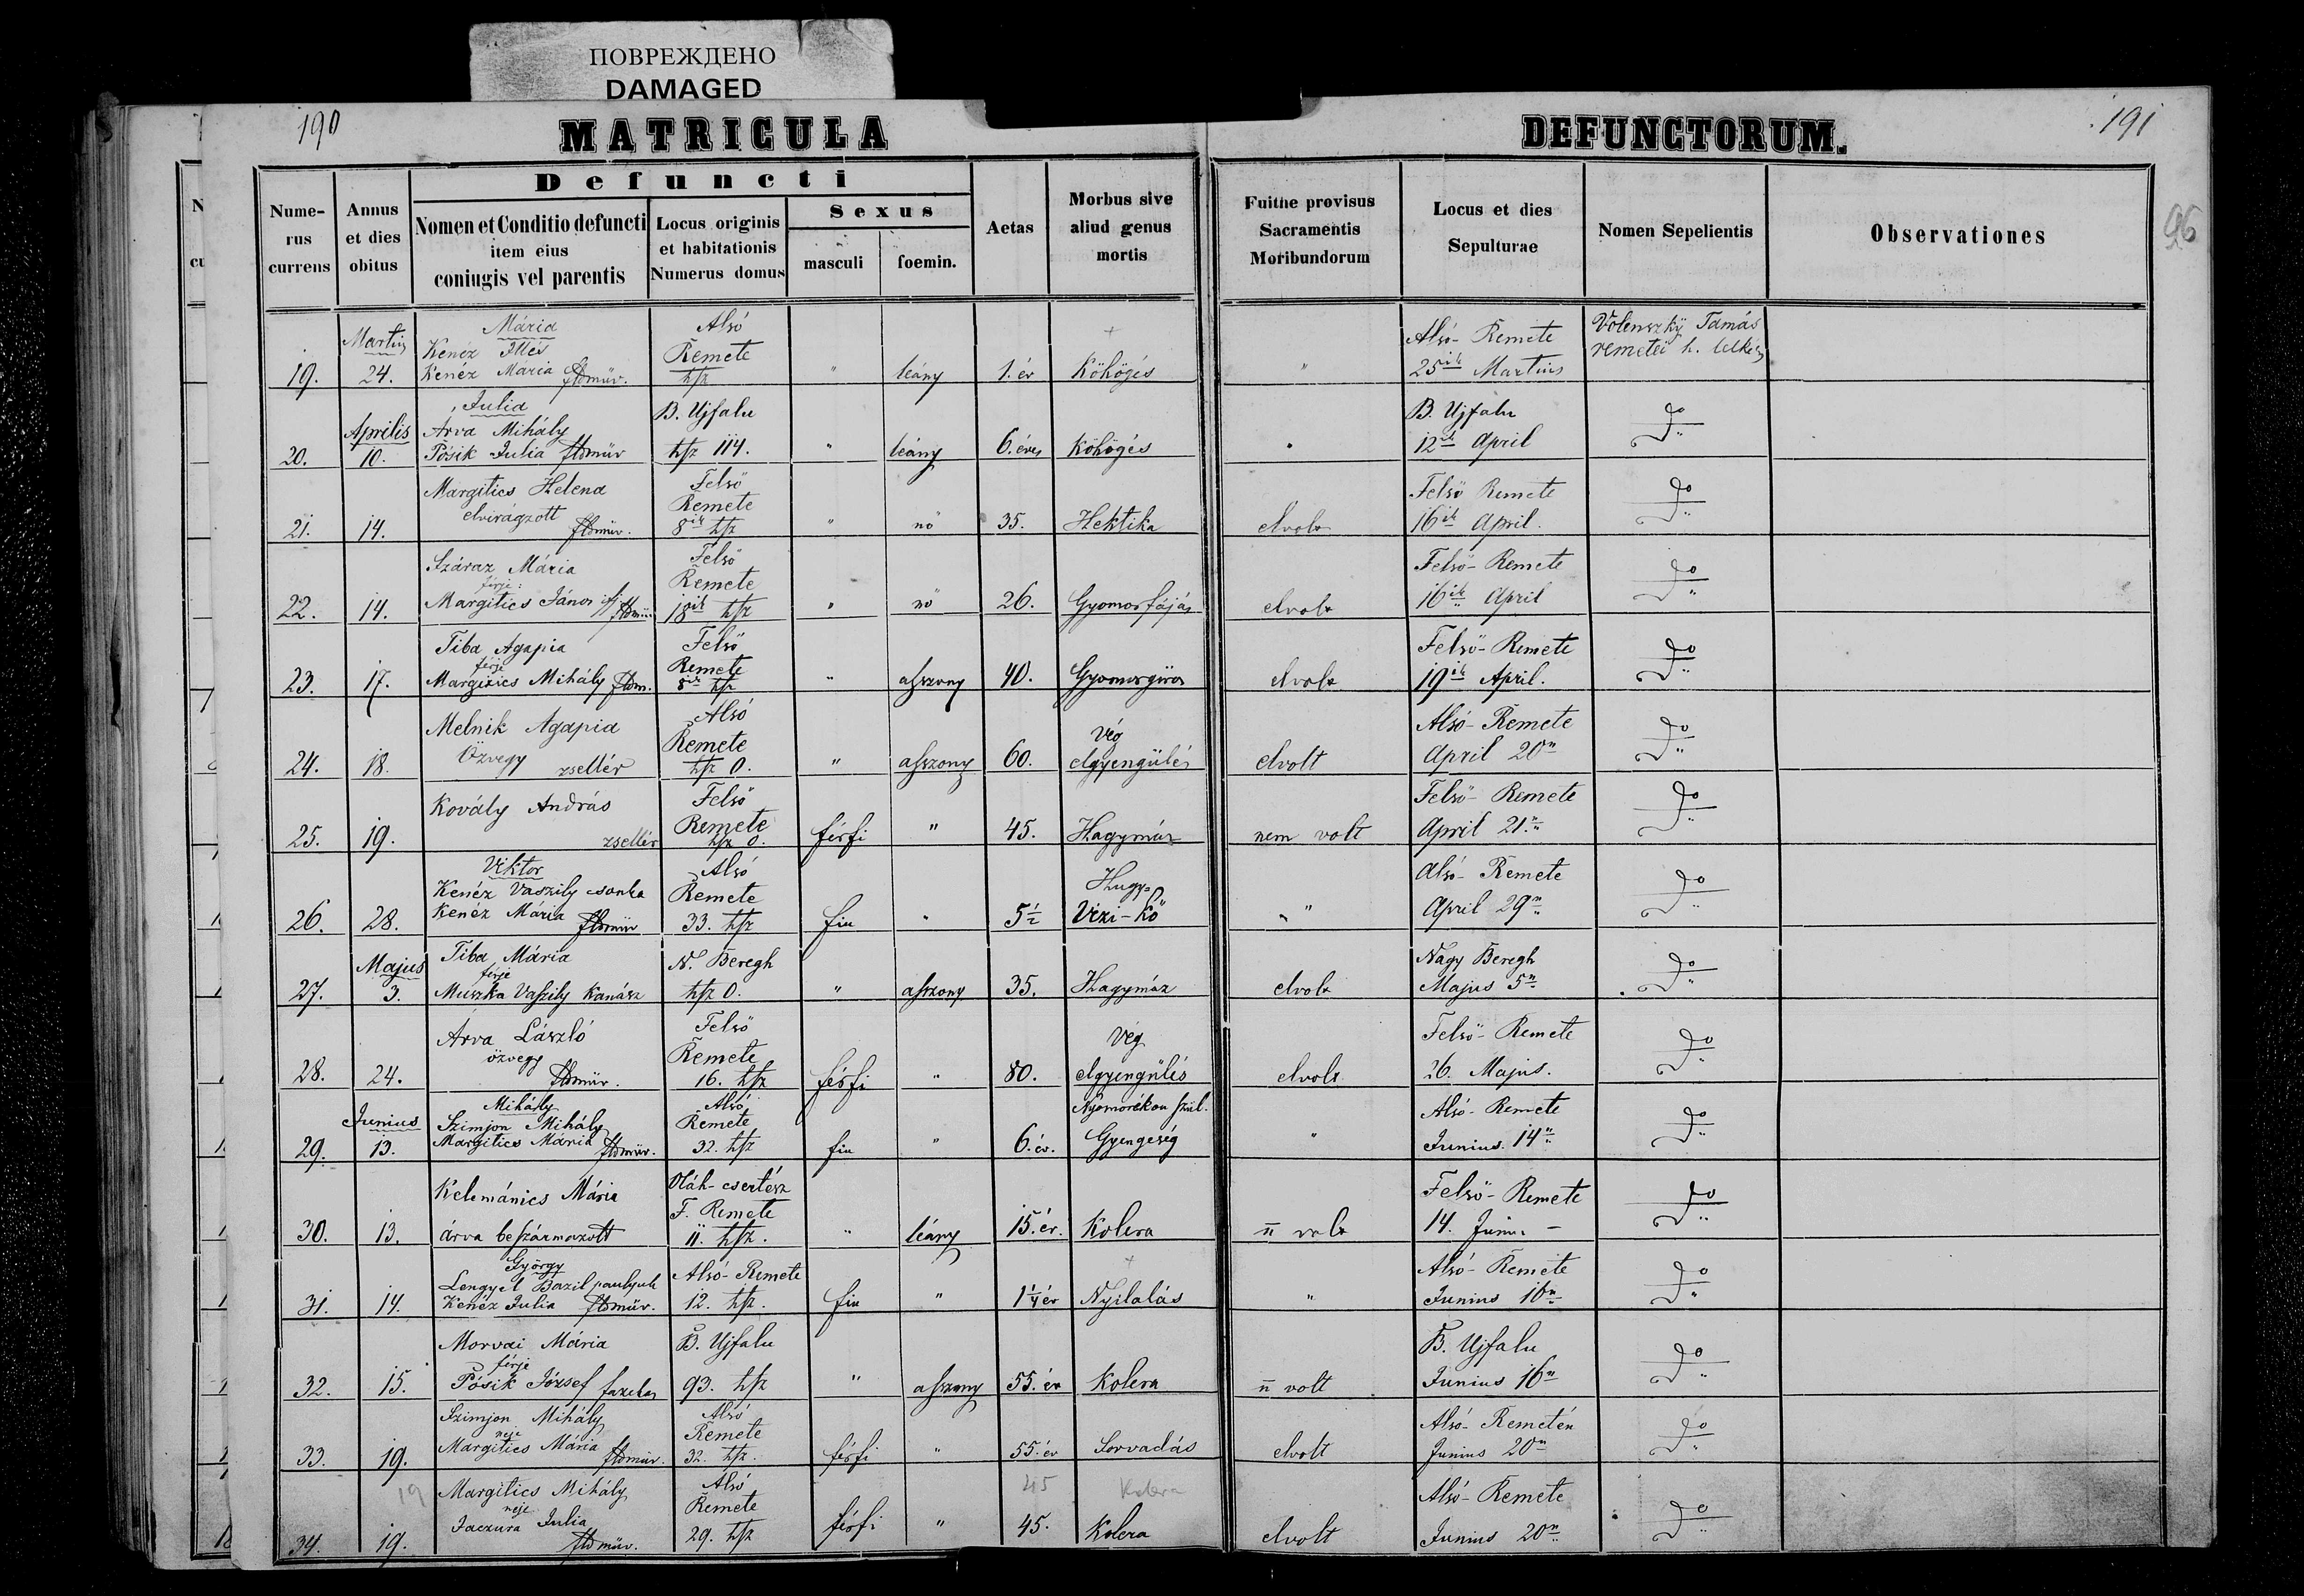 ПОВРЕЖДЕНО
DAMAGED
190
MATRICULA
DEFUNCTORUM.
191
96
Numerus currens
Annus et dies obitus
Defuncti
Nomen et Conditio defuncti item eius coniugis vel parentis
Locus originis et habitationis Numerus domus
Sexus
masculi
foemin.
Aetas
Morbus sive aliud genus mortis
Fuitne provisus Sacramentis Moribundorum
Locus et dies Sepulturae
Nomen Sepelientis
Observationes
19. Martius 24. Mária Kenéz Illés Kenéz Mária földmüv. Alsó Remete hsz " leány 1. év Köhögés " Alsó-Remete 25ik Martius Volenszky Tamás remetei h. lelkész
20. Aprilis 10. Julia Árva Mihály Pósik Julia földmüv B. Ujfalu hsz 114. " leány 6. éves Köhögés " B. Ujfalu 12ik April do
21. 14. Margitics Helena elvirágzott földmüv. Felső Remete 8ik hsz " nő 35. Hektika elvolt Felső Remete 16ik April. do
22. 14. Száraz Mária férje: Margitics János ifj földmüv. Felső Remete 18ik hsz " nő 26. Gyomorfájás elvolt Felső-Remete 16ik April do
23. 17. Tiba Agapia férje Margitics Mihály földm. Felső Remete 8ik hsz " aszszony 40. Gyomorgörcs elvolt Felső-Remete 19ik April. do
24. 18. Melnik Agapia Özvegy zsellér Alsó Remete hsz 0. " aszszony 60. Vég elgyengülés elvolt Alsó-Remete April 20n do
25. 19. Kovály András zsellér Felső Remete hsz 0. férfi " 45. Hagymáz nem volt Felső-Remete April 21.n do
26. 28. Viktor Kenéz Vaszily csonka Kenéz Mária földmüv Alsó Remete 33. hsz fiu " 5½ Hugy= Vizi-Kő " Alsó-Remete April 29n do
27. Majus 3. Tiba Mária férje Muszka Vaszily Kanász N. Beregh hsz 0. " aszszony 35. Hagymáz elvolt Nagy Beregh Majus 5n do
28. 24. Árva László özvegy földmüv. Felső Remete 16. hsz férfi " 80. Vég elgyengülés elvolt Felső-Remete 26. Majus. do
29. Junius 13. Mihály Szimjon Mihály Margitics Mária földmüv. Alsó Remete 32. hsz fiu " 6. év. Nyomorékon szül. Gyengeség " Alsó-Remete Junius 14n do
30. 13. Kelemánics Mária árva beszármazott Oláh-csertész F. Remete 11. hsz. " leány 15. év. Kolera n volt Felső-Remete 14. Juni do
31. 14. György Lengyel Bazil Kenéz Julia földmüv. Alsó-Remete 12. hsz. fiu " 1¼ év Nyilalás " Alsó-Remete Junius 16n do
32. 15. Morvai Mária férje Pósik József fazekas B. Ujfalu 93. hsz " aszszony 55. év Kolera n volt B. Ujfalu Junius 16n do
33. 19. Szimjon Mihály neje Margitics Mária földmüv. Alsó Remete 32. hsz. férfi " 55. év Sorvadás elvolt Alsó-Remetén Junius 20n do
34. 19. Margitics Mihály neje Jaczura Julia földmüv. Alsó Remete 29. hsz férfi " 45. Kolera elvolt Alsó-Remete Junius 20n do
19 45 Kolera